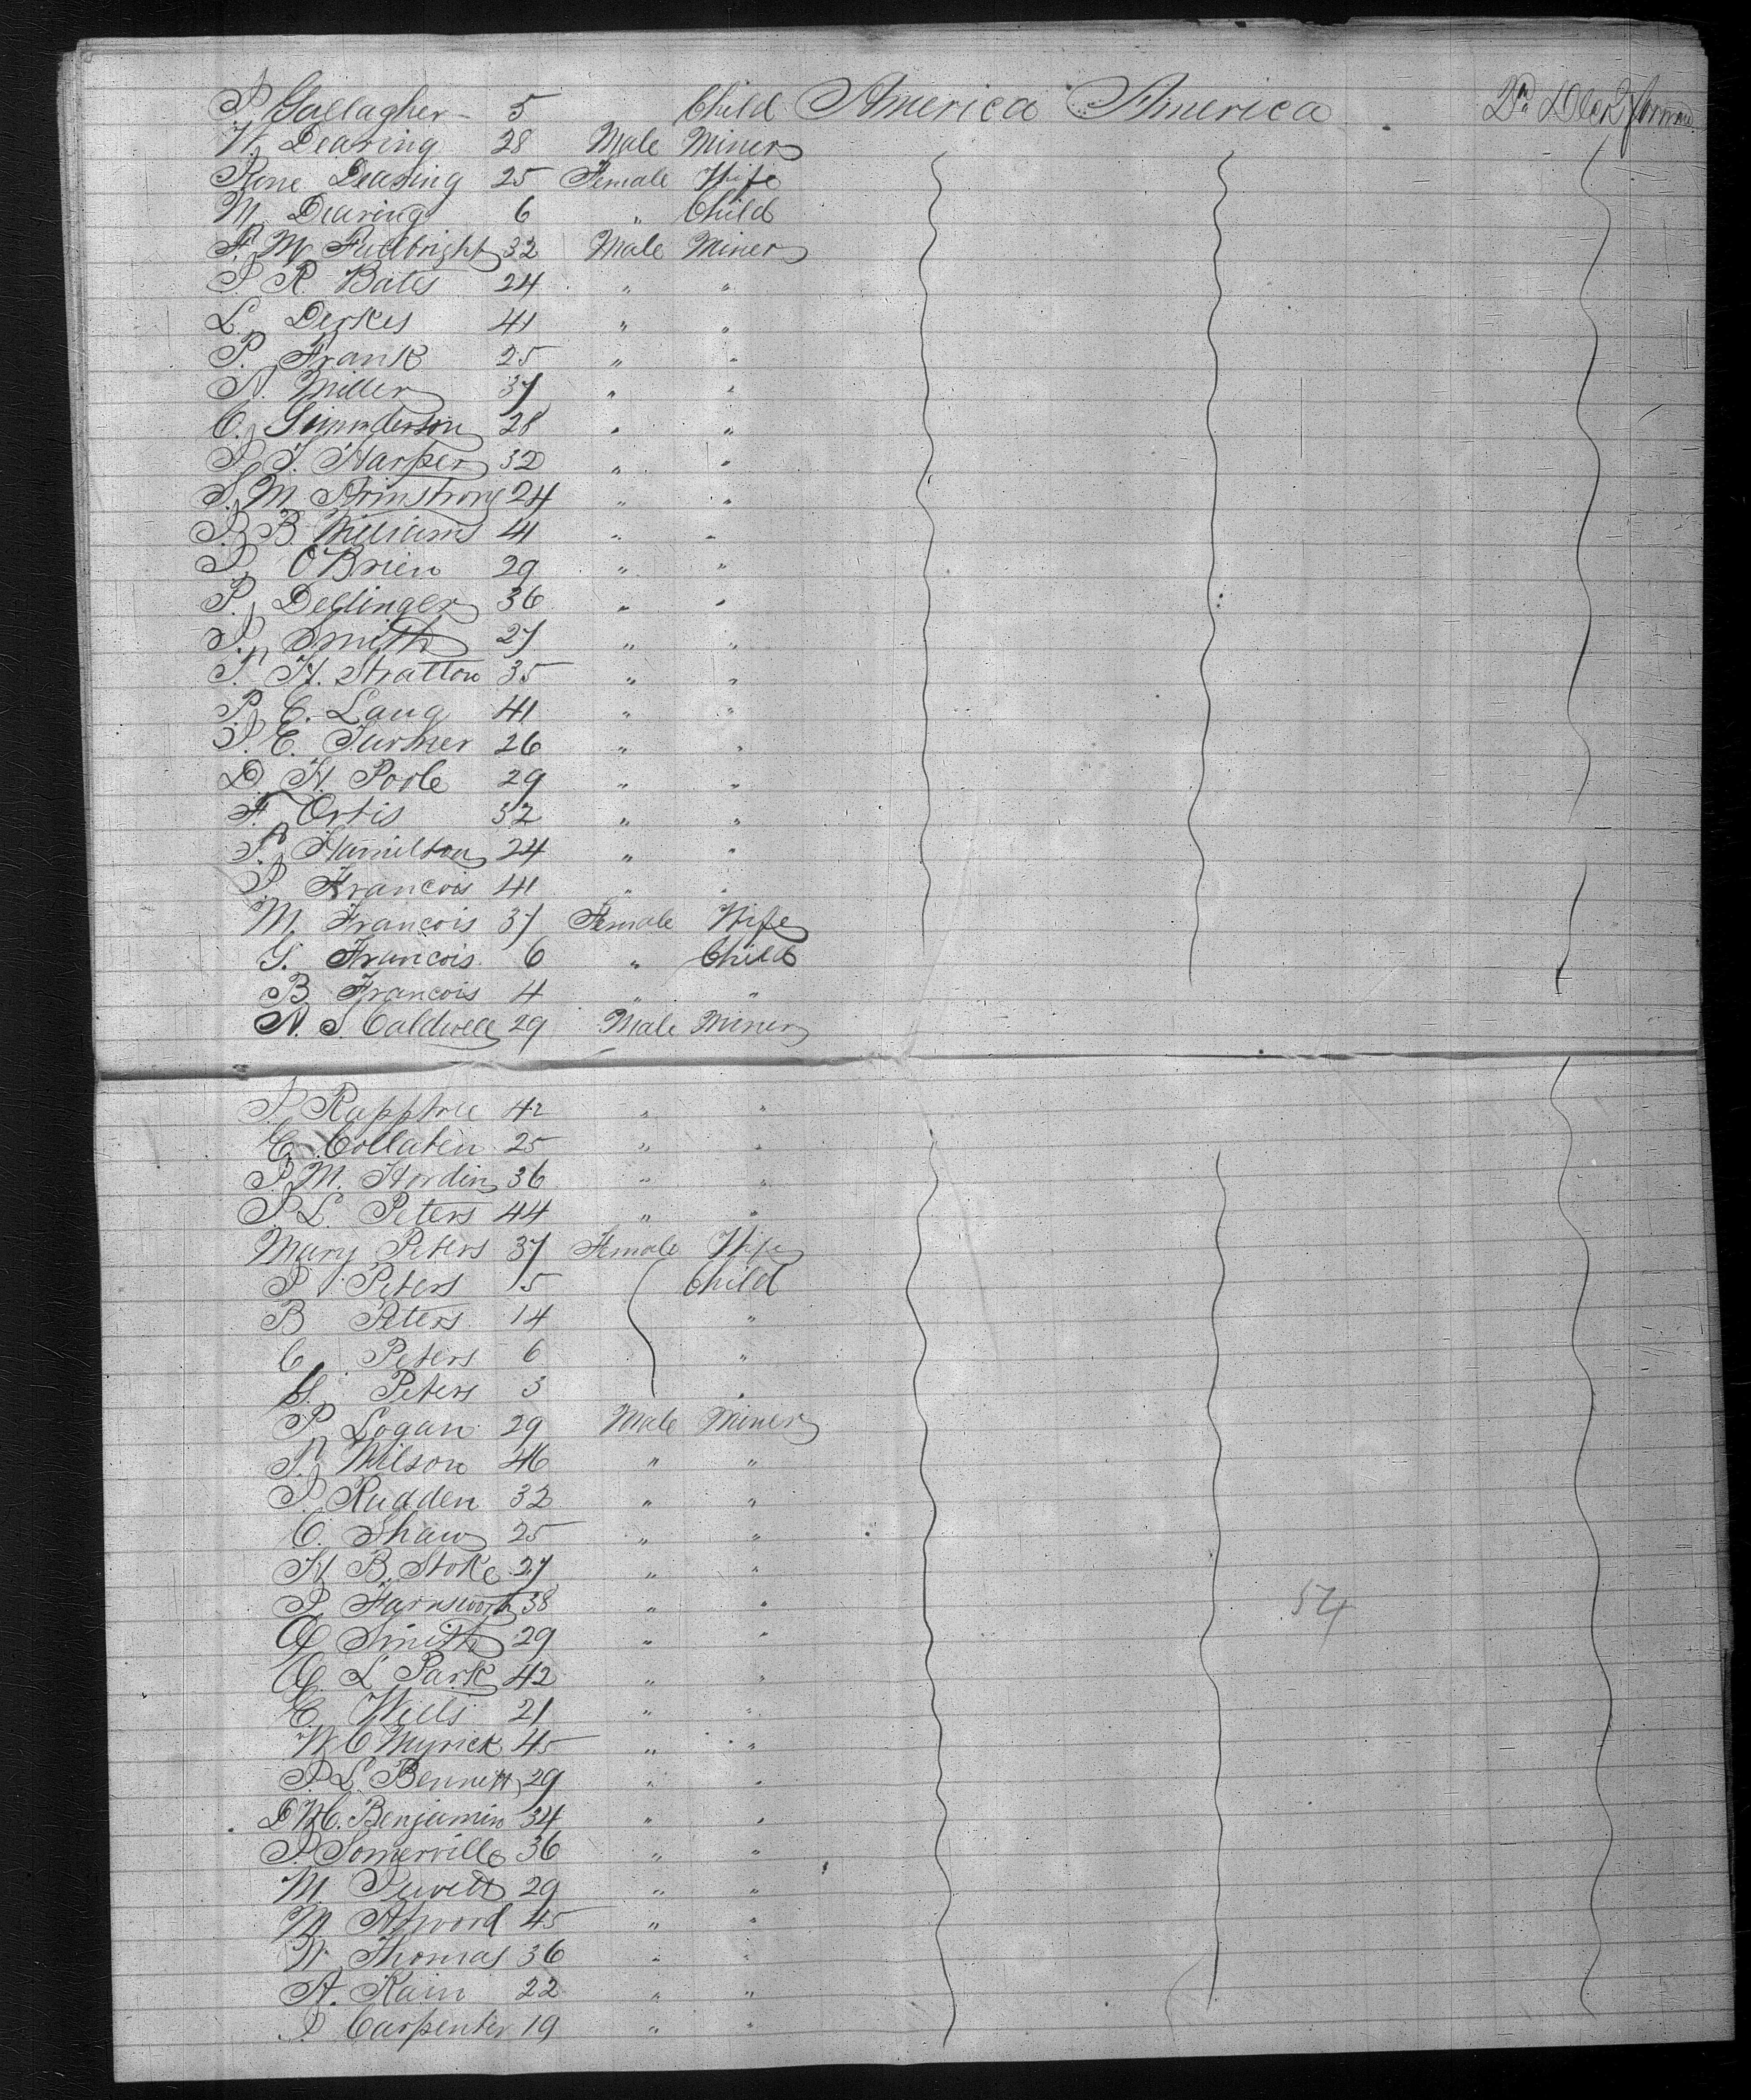 J Gallagher 5 Child America America 2d Deck forward
W. Dearing 28 Male Miner
Jane Dearing 25 Female Wife
M Dearing 6 " Child
F. M Fullbright 32 Male Miner
J. R. Bates 24 " "
L. Derkes 41 " "
P. Frank 25 " "
N. Miller 37 " "
C. 28 " "
J. T. Harper 32 " "
S. M. Armstrong 24 " "
J. B. Williams 41 " "
J. O'Brien 29 " "
P. Dellinger 36 " "
J. Smith 27 " "
T. H. Stratton 35 " "
P. C. Laug 41 " "
J. E. Turner 26 " "
D. H. Poole 29 " "
F. Ortis 32 " "
P. Hamilton 24 " "
J. Francois 41 " "
M. Francois 37 Female Wife
S. Francois 6 " Child
B Francois 4 " "
N. J. Caldwell 29 Male Miner
J. 42 " "
C. Collaten 25 " "
J. M. Hordin 36 " "
J. L. Peters 44 " "
Mary Peters 37 Female Wife
J. Peters 15 Child
B Peters 14 "
C. Peters 6 "
S. Peters 3 "
P. Logan 29 Male Miner
T. Wilson 46 " "
J. Rudden 32 " "
C. Shaw 25 " "
H B. Stoke 27 " "
J. Farnsworth 38 " "
A Smith 29 " "
A. L Park 42 " "
C. Wills 21 " "
W C Myrick 45 " "
J. L. Bennett 29 " "
D W C. Benjamin 34 " "
J. Somerville 36 " "
M. Jewett 29 " "
M. Atwood 45 " "
W. Thomas 36 " "
A. Kain 22 " "
J Carpenter 19 " "
54